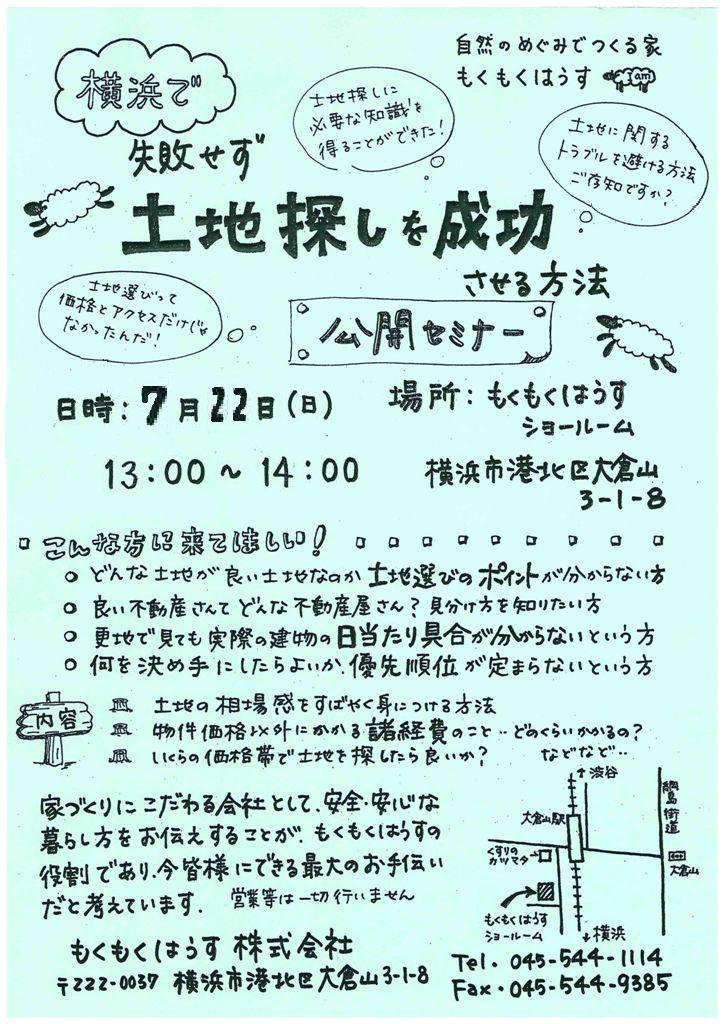 自然のめぐみでつくる家
もくもくはうす
I am
横浜で
失敗せず
土地探しに
必要な知識を
得ることができた!
土地に関する
トラブルを避ける方法
ご存知ですか?
土地探しを成功
させる方法
土地選びって
価格とアクセスだけじゃ
なかったんだ!
公開セミナー
日時:7月22日(日)
13:00～14:00
場所:もくもくはうす
ショールーム
横浜市港北区大倉山
3-1-8
こんな方に来てほしい!
どんな土地が良い土地なのか 土地選びのポイントが分からない方
良い不動産さんてどんな不動産屋さん?見分け方を知りたい方
更地で見ても実際の建物の日当たり具合が分からないという方
何を決め手にしたらよいか、優先順位が定まらないという方
内容
土地の相場感をすばやく身につける方法
物件価格以外にかかる諸経費のこと‥どのくらいかかるの?
いくらの価格帯で土地を探したら良いか? などなど‥
家づくりにこだわる会社として、安全・安心な
暮らし方をお伝えすることが、もくもくはうすの
役割であり、今皆様にできる最大のお手伝い
だと考えています. 営業等は一切行いません
↑渋谷
大倉山駅
綱島街道
くすりの
カツマタ→
大倉山
もくもくはうす
ショールーム
↓横浜
もくもくはうす 株式会社
〒222-0037 横浜市港北区大倉山3-1-8
Tel・045-544-1114
Fax・045-544-9385